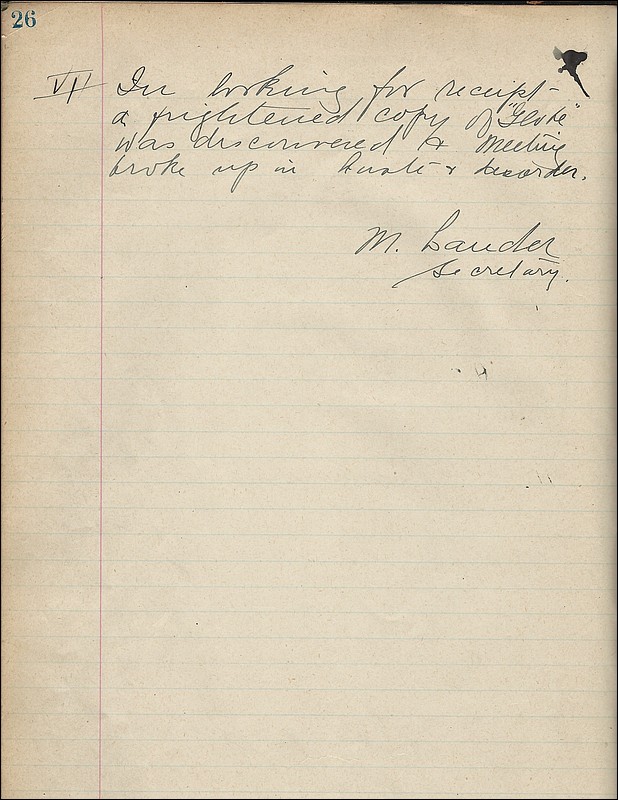 26
VII In looking for receipt -
a frightened copy of "Globe"
was discovered & Meeting
broke up in haste & disorder.
M. Lauder
Secretary.